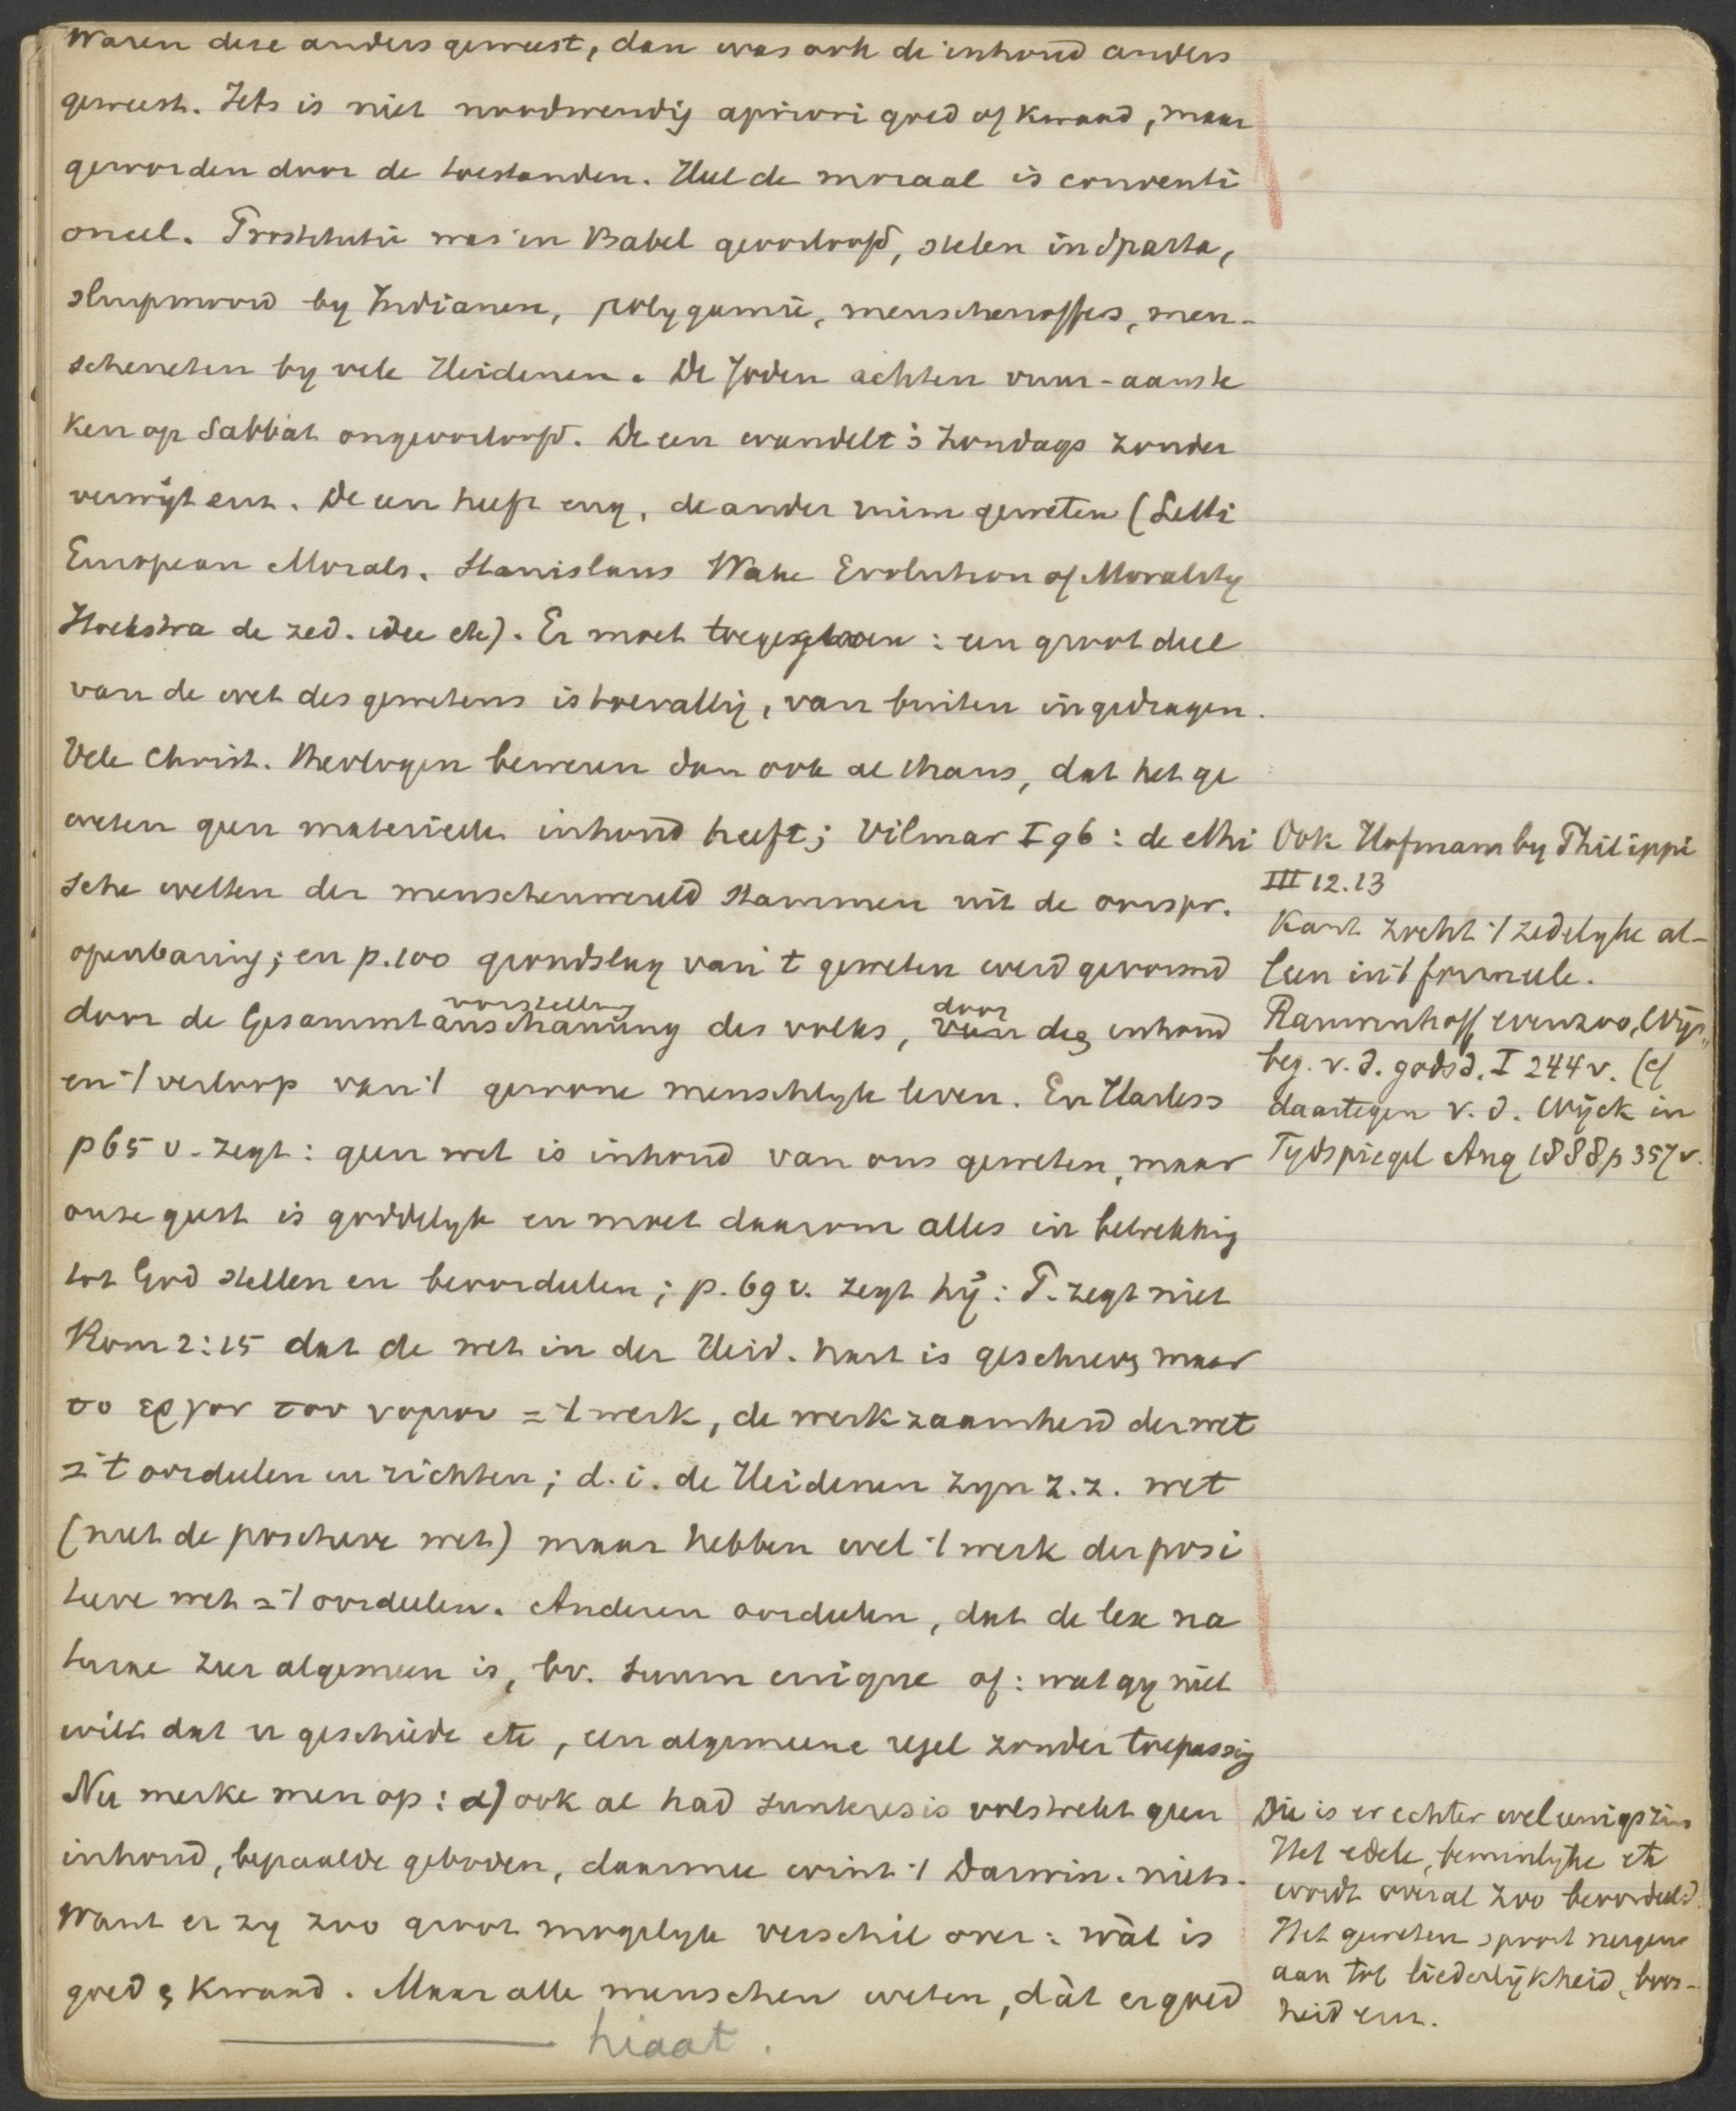 Waren deze anders geweest, dan was ook de inhoud anders
geweest. Iets is niet noodwendig apriori goed of kwaad, maar
geworden door de toestanden. Heel de moraal is conventi
oneel. Prostitutie was in Babel geoorloofd, stelen in Sparta,
sluipmoord by Indianen, polygamie, menschenoffers, men-
scheneten by vele Heidenen. De Joden achten vuur-aanste
ken op Sabbat ongeoorloofd. De een wandelt 's Zondags zonder
verwijt enz. De een heeft eng, de ander ruim geweten (Lecki
European Morals. Stanislaus Wake Evolution of Morality
Hoekstra de zed. idee etc). Er moet toegegeven : een groot deel
van de wet des gewetens is toevallig, van buiten ingedragen.
Vele Christ. Theologen beweren dan ook althans, dat het ge
weten geen materieelen inhoud heeft; Vilmar I 96 : de ethi
sche wetten der menschenwereld stammen uit de oorspr.
openbaring; en p. 100 grondslag van 't geweten werd gevormd
door de Gesammtanschauung des volks, van den inhoud
vorstellung
door
en 't verloop van 't gewone menschlyk leven. En Harless
p 65 v. zegt : geen wet is inhoud van ons geweten, maar
onze geest is goddelyk en moet daarom alles in betrekking
tot God stellen en beoordeelen ; p. 69 v. zegt hy : P. zegt niet
Rom 2:15 dat de wet in der Heid. hart is geschreven maar
το εργον του νομου = 't werk, de werkzaamheid der wet
= 't oordeelen en richten ; d. i. de Heidenen zyn z. z. wet
(niet de positieve wet) maar hebben wel 't werk der posi
tieve wet = 't oordeelen. Anderen oordeelen, dat de lex na
turae zeer algemeen is, bv. suum cuique of : wat gy niet
wilt dat u geschiede etc, een algemeene regel zonder toepassing
Nu merke men op : α) ook al had sunteresis volstrekt geen
inhoud, bepaalde geboden, daarmee wint 't Darwin. niets.
Want er zy zoo groot mogelyk verschil over : wàt is
goed en kwaad. Maar alle menschen weten, dàt er goed
hiaat.
Ook Hofmann by Philippi
III 12.13
Kant zoekt 't zedelyke al-
leen in 't formeele.
Rauwenhoff evenzoo, Wijs
beg. v. d. godsd. I 244 v. (cf
daartegen v. d. Wijck in
Tydspiegel Aug 1888 p 357 v.
Die is er echter wel eenigszins
Het edele, beminlyke etc
wordt overal zoo beoordeeld.
Het geweten spoort nergens
aan tot liederlijkheid, boos-
heid enz.